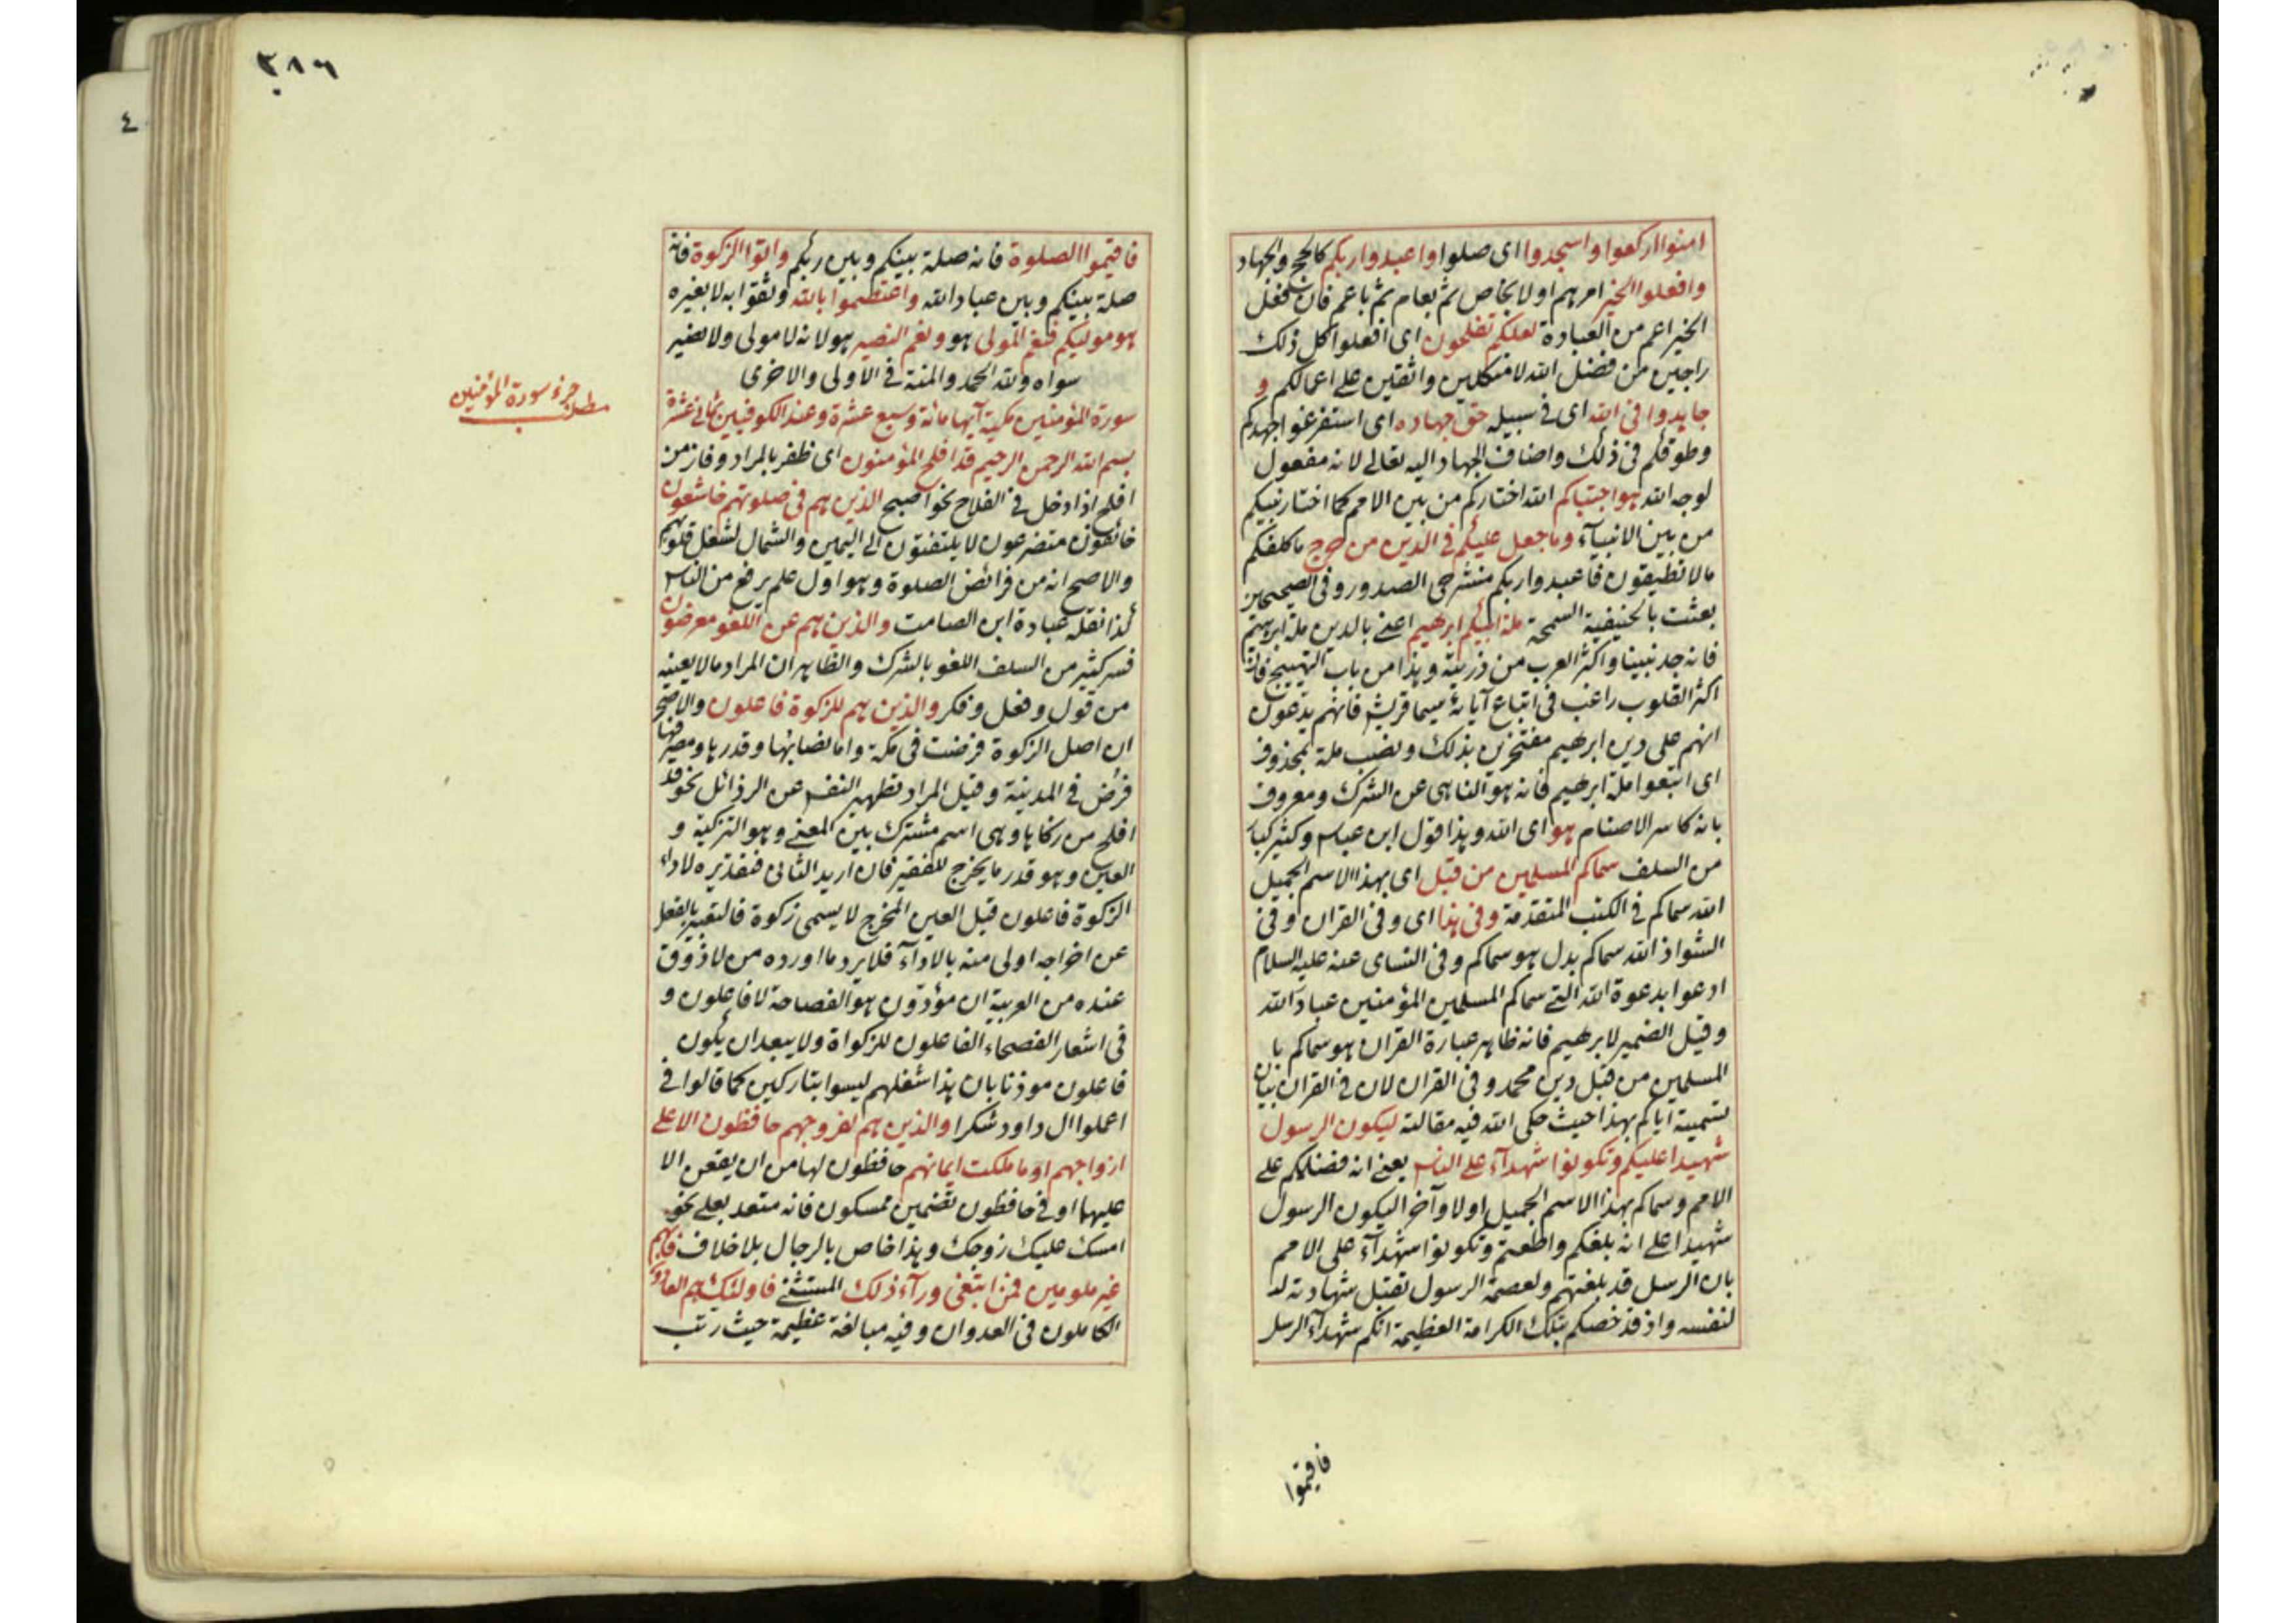 امنوا اركعوا واسجدوا اى صلوا واعبدوا ربكم كالحج والجهاد
وافعلوا الخير امرهم اولا بخاص ثم بعام ثم باعم فان فعل
الخير اعم من العبادة لعلكم تفلحون اى افعلوا كل ذلك
راجين من فضل الله لا متكلين واثقين على اعمالكم و
جاهدوا فى الله اى فى سبيله حق جهاده اى استفرغوا جهدكم
وطوقكم فى ذلك واضاف الجهاد اليه تعالى لانه مفعول
لوجه الله هو اجتباكم الله اختاركم من بين الامم كما اختار نبيكم
من بين الانبيآء وما جعل عليكم فى الدين من حرج ما كلفكم
مالا تطيقون فاعبدوا ربكم منشرحى الصدور وفى الصحيحين
بعثت بالحنيفية السمحة ملة ابيكم ابرهيم اعنى بالدين ملة ابرهيم
فانه جد نبينا واكثر العرب من ذريته وهذا من باب التهييج فان
اكثر القلوب راغب فى اتباع آبائه سيما قريش فانهم يدعون
انهم على دين ابرهيم مفتخرين بذلك ونصب ملة بمحذوف
اى اتبعوا ملة ابرهيم فانه هو الناهى عن الشرك ومعروف
بانه كاسر الاصنام هو اى الله وهذا قول ابن عباس وكثير كبار
من السلف سماكم المسلمين من قبل اى بهذا الاسم الجميل
الله سماكم فى الكتب المتقدمة وفى هذا اى وفى القران وفى
الشواذ الله سماكم بدل هو سماكم وفى النساى عنه عليه السلام
ادعوا بدعوة الله التى سماكم المسلمين المؤمنين عباد الله
وقيل الضمير لابرهيم فانه ظاهر عبارة القران هو سماكم با
المسلمين من قبل دين محمد وفى القران لان فى القران بيان
تسميته اياكم بهذا حيث حكى الله فيه مقالته ليكون الرسول
شهيدا عليكم وتكونوا شهدآء على الناس يعنى انه فضلكم على
الامم وسماكم بهذا الاسم الجميل اولا وآخرا ليكون الرسول
شهيدا على انه بلغكم واطعتم وتكونوا شهدآء على الامم
بان الرسل قد بلغتهم ولعصمة الرسول تقبل شهادته له
لنفسه واذ قد خصكم بتلك الكرامة العظيمة انكم شهدآء الرسل
فاقيموا
٢٨٦
فاقيموا الصلوة فانه صلة بينكم وبين ربكم واتوا الزكوة فانه
صلة بينكم وبين عباد الله واعتصموا بالله وثقوا به لا بغيره
هو موليكم فنعم المولى هو ونعم النصير هو لانه لا مولى ولا نصير
سواه ولله الحمد والمنة فى الاولى والاخرى
سورة المؤمنين مكية آيها مائة وسبع عشرة وعند الكوفيين ثمانى عشرة
بسم الله الرحمن الرحيم قد افلح المؤمنون اى ظفر بالمراد وفاز من
افلح اذا دخل فى الفلاح نحو اصبح الذين هم فى صلوتهم خاشعون
خائفون متضرعون لا يلتفتون الى اليمين والشمال لشغل قلوبهم
والاصح انه من فرائض الصلوة وهو اول علم يرفع من الناس
كذا نقله عبادة ابن الصامت والذين هم عن اللغو معرضون
فسر كثير من السلف اللغو بالشرك والظاهر ان المراد مالا يعنيه
من قول وفعل وفكر والذين هم للزكوة فاعلون والاصح
ان اصل الزكوة فرضت فى مكة واما نصابها وقدرها ومصرفها
فرض فى المدينة وقيل المراد تطهير النفس عن الرذائل نحو قد
افلح من زكاها وهى اسم مشترك بين المعنى وهو التزكية و
العين وهو قدر ما يخرج للفقير فان اريد الثانى فتقديره لاداء
الزكوة فاعلون قيل العين المخرج لا يسمى زكوة فالتعبير بالفعل
عن اخراجه اولى منه بالادآء فلا يرد ما اورده من لا ذوق
عنده من العربية ان مؤدون هو الفصاحة لا فاعلون و
فى اشعار الفصحاء الفاعلون للزكواة ولا يبعد ان يكون
فاعلون موذنا بان هذا شغلهم ليسوا بتاركين كما قالوا فى
اعملوا ال داود شكرا والذين هم لفروجهم حافظون الا على
ازواجهم او ما ملكت ايمانهم حافظون لها من ان يقعن الا
عليهما او فى حافظون تضمين ممسكون فانه متعد بعلى نحو
امسك عليك زوجك وهذا خاص بالرجال بلا خلاف فانهم
غير ملومين فمن ابتغى ورآء ذلك المستثنى فاولئك هم العادون
الكاملون فى العدوان وفيه مبالغة عظيمة حيث رتب
مطلب جزء سورة المؤمنين
٤